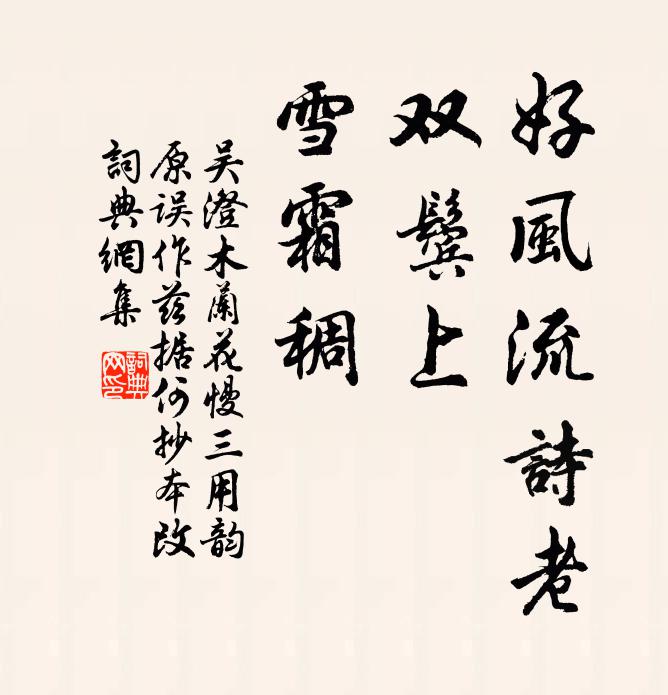 好風流詩老
双鬓上
雪霜稠
吴澄木蘭花慢三用韵
原误作兹据何抄本改
詞典網集
詞典
网印